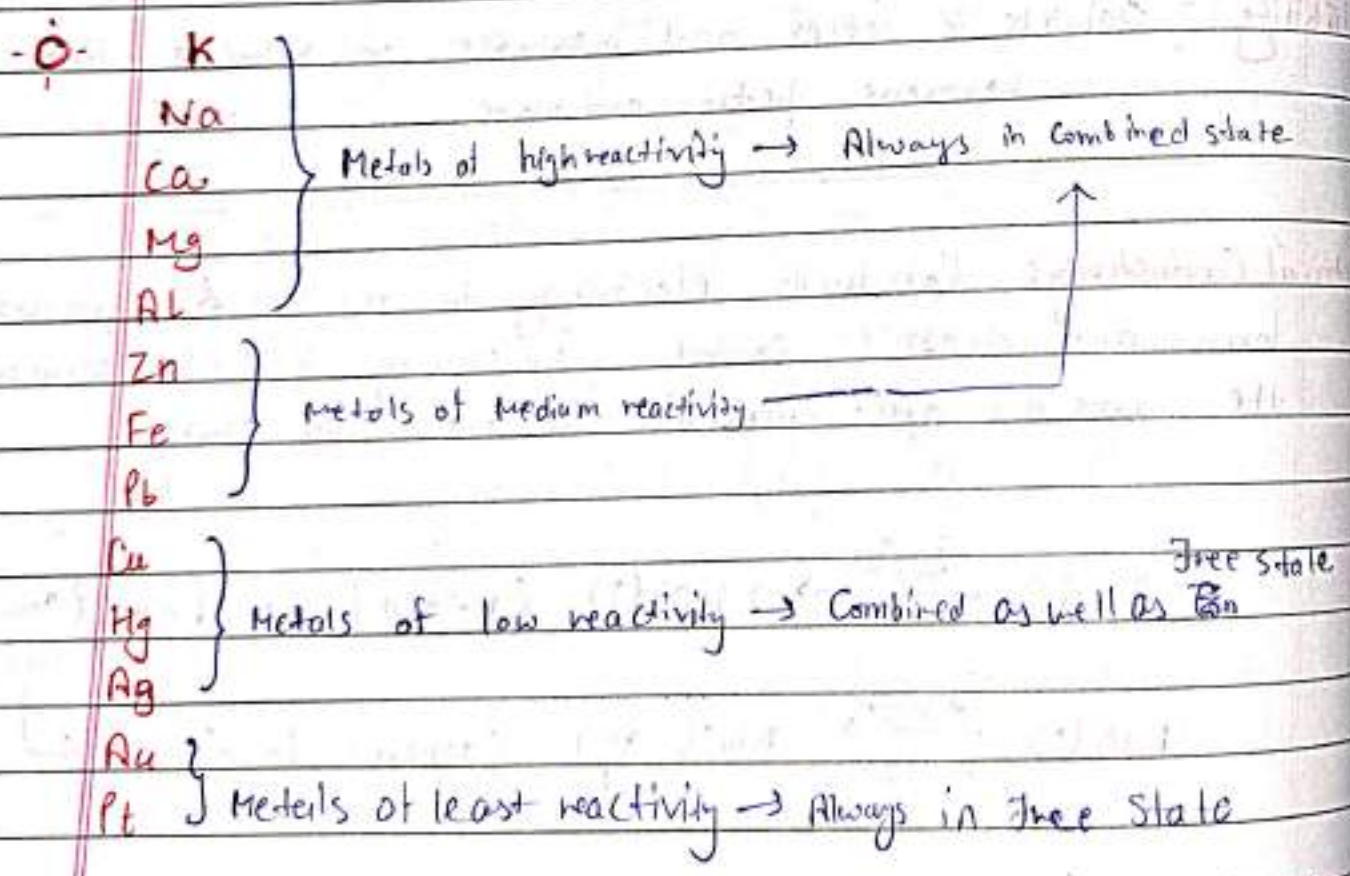 K
Na
Ca
Metals of high reactivity → Always in Combined state
Mg
Al
Zn
Metals of Medium reactivity
Fe
Pb
Cu
Free state
Hg
Metals of low reactivity → Combined as well as
Ag
Au
Pt
Metals of least reactivity → Always in Free State